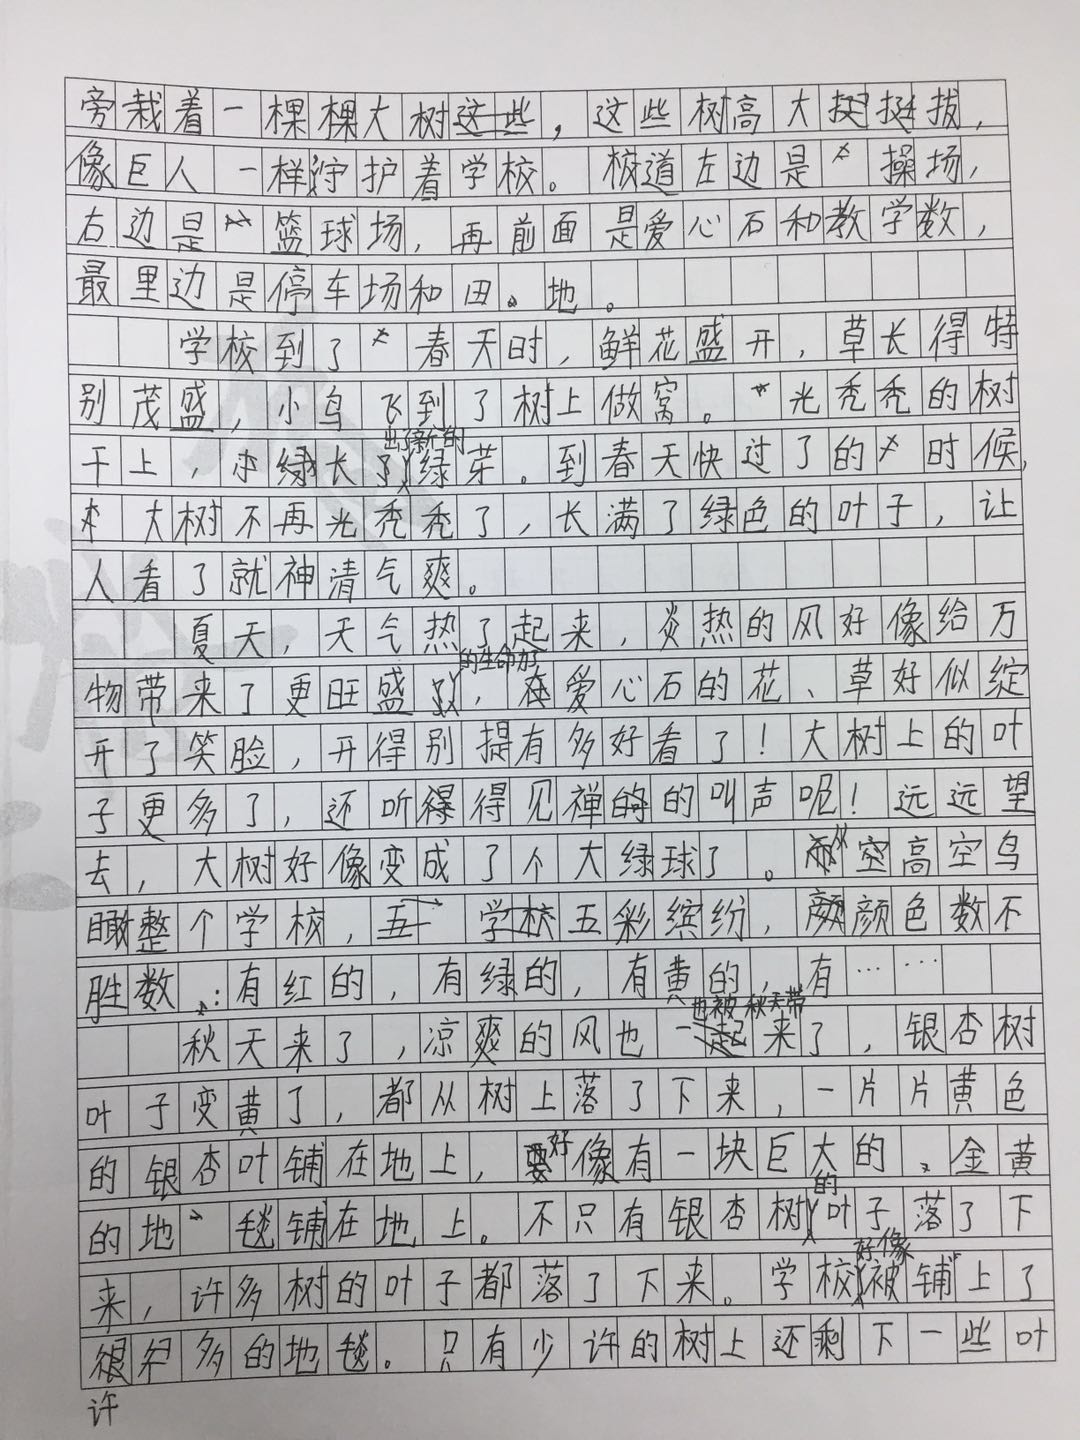 旁栽着一棵棵大树，这些树高大挺拔，
像巨人一样守护着学校。校道左边是操场，
右边是篮球场，再前面是爱心石和教学数，
最里边是停车场和田地。
学校到了春天时，鲜花盛开，草长得特
别茂盛，小鸟飞到了树上做窝。光秃秃的树
干上，长出了新的绿芽。到春天快过了的时候，
大树不再光秃秃了，长满了绿色的叶子，让
人看了就神清气爽。
夏天，天气热了起来，炎热的风好像给万
物带来了更旺盛的生命力，在爱心石的花、草好似绽
开了笑脸，开得别提有多好看了！大树上的叶
子更多了，还听得见禅的叫声呢！远远望
去，大树好像变成了个大绿球了。高空鸟
瞰整个学校，五彩缤纷，颜色数不
胜数：有红的，有绿的，有黄的，有……
秋天来了，凉爽的风也被秋天带来了，银杏树
叶子变黄了，都从树上落了下来，一片片黄色
的银杏叶铺在地上，好像有一块巨大的、金黄
的地毯铺在地上。不只有银杏树的叶子落了下
来，许多树的叶子都落了下来。学校好像被铺上了
很多的地毯。只有少许的树上还剩下一些叶
许